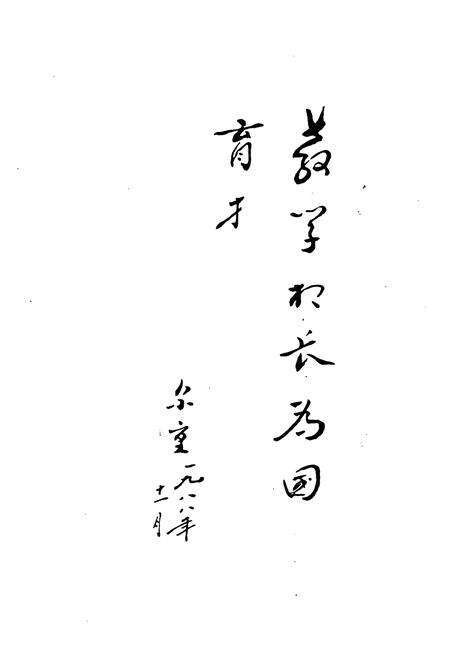 教学相长为国
育才
尔重一九八八年
十一月